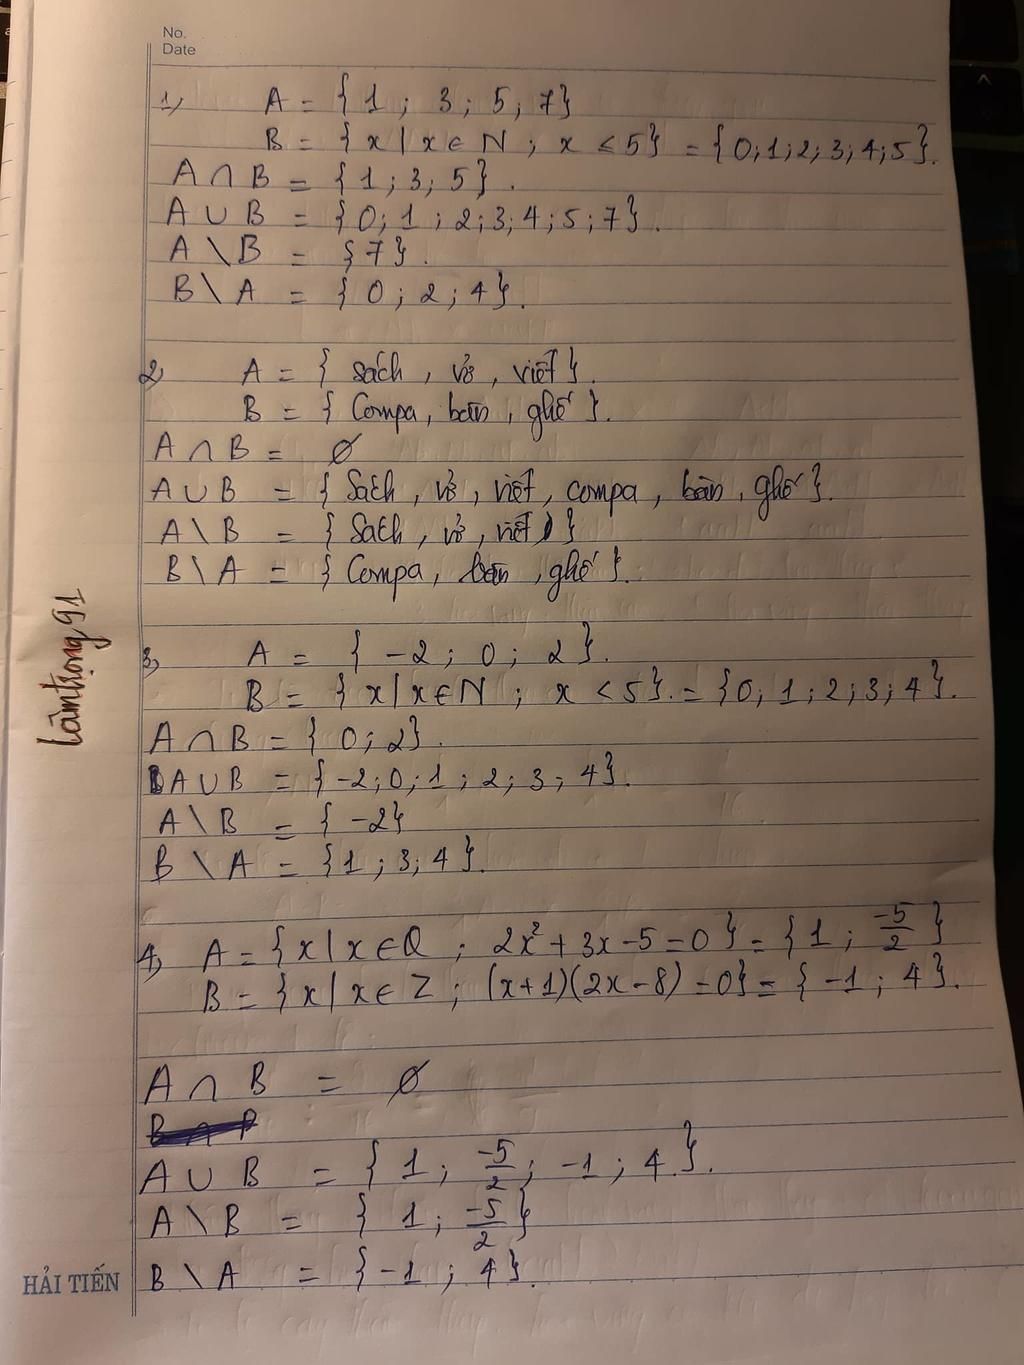 No.
Date
1, A = { 1 ; 3 ; 5 ; 7 }
B = { x | x ∈ N ; x ≤ 5 } = { 0 ; 1 ; 2 ; 3 ; 4 ; 5 }.
A ∩ B = { 1 ; 3 ; 5 }.
A ∪ B = { 0 ; 1 ; 2 ; 3 ; 4 ; 5 ; 7 }.
A \ B = { 7 }.
B \ A = { 0 ; 2 ; 4 }.
2, A = { sách , vở , viết }.
B = { Compa , bàn , ghế }.
A ∩ B = ∅
A ∪ B = { Sách , vở , viết , compa , bàn , ghế }.
A \ B = { Sách , vở , viết }
B \ A = { Compa , bàn , ghế }.
3, A = { -2 ; 0 ; 2 }.
B = { x | x ∈ N ; x < 5 }. = { 0 ; 1 ; 2 ; 3 ; 4 }.
A ∩ B = { 0 ; 2 }.
A ∪ B = { -2 ; 0 ; 1 ; 2 ; 3 ; 4 }.
A \ B = { -2 }
B \ A = { 1 ; 3 ; 4 }.
4, A = { x | x ∈ Q ; 2x² + 3x - 5 = 0 } = { 1 ; -5/2 }
B = { x | x ∈ Z ; (x + 1)(2x - 8) = 0 } = { -1 ; 4 }.
A ∩ B = ∅
A ∪ B = { 1 ; -5/2 ; -1 ; 4 }.
A \ B = { 1 ; -5/2 }
B \ A = { -1 ; 4 }.
lâmtrọng91
HẢI TIẾN